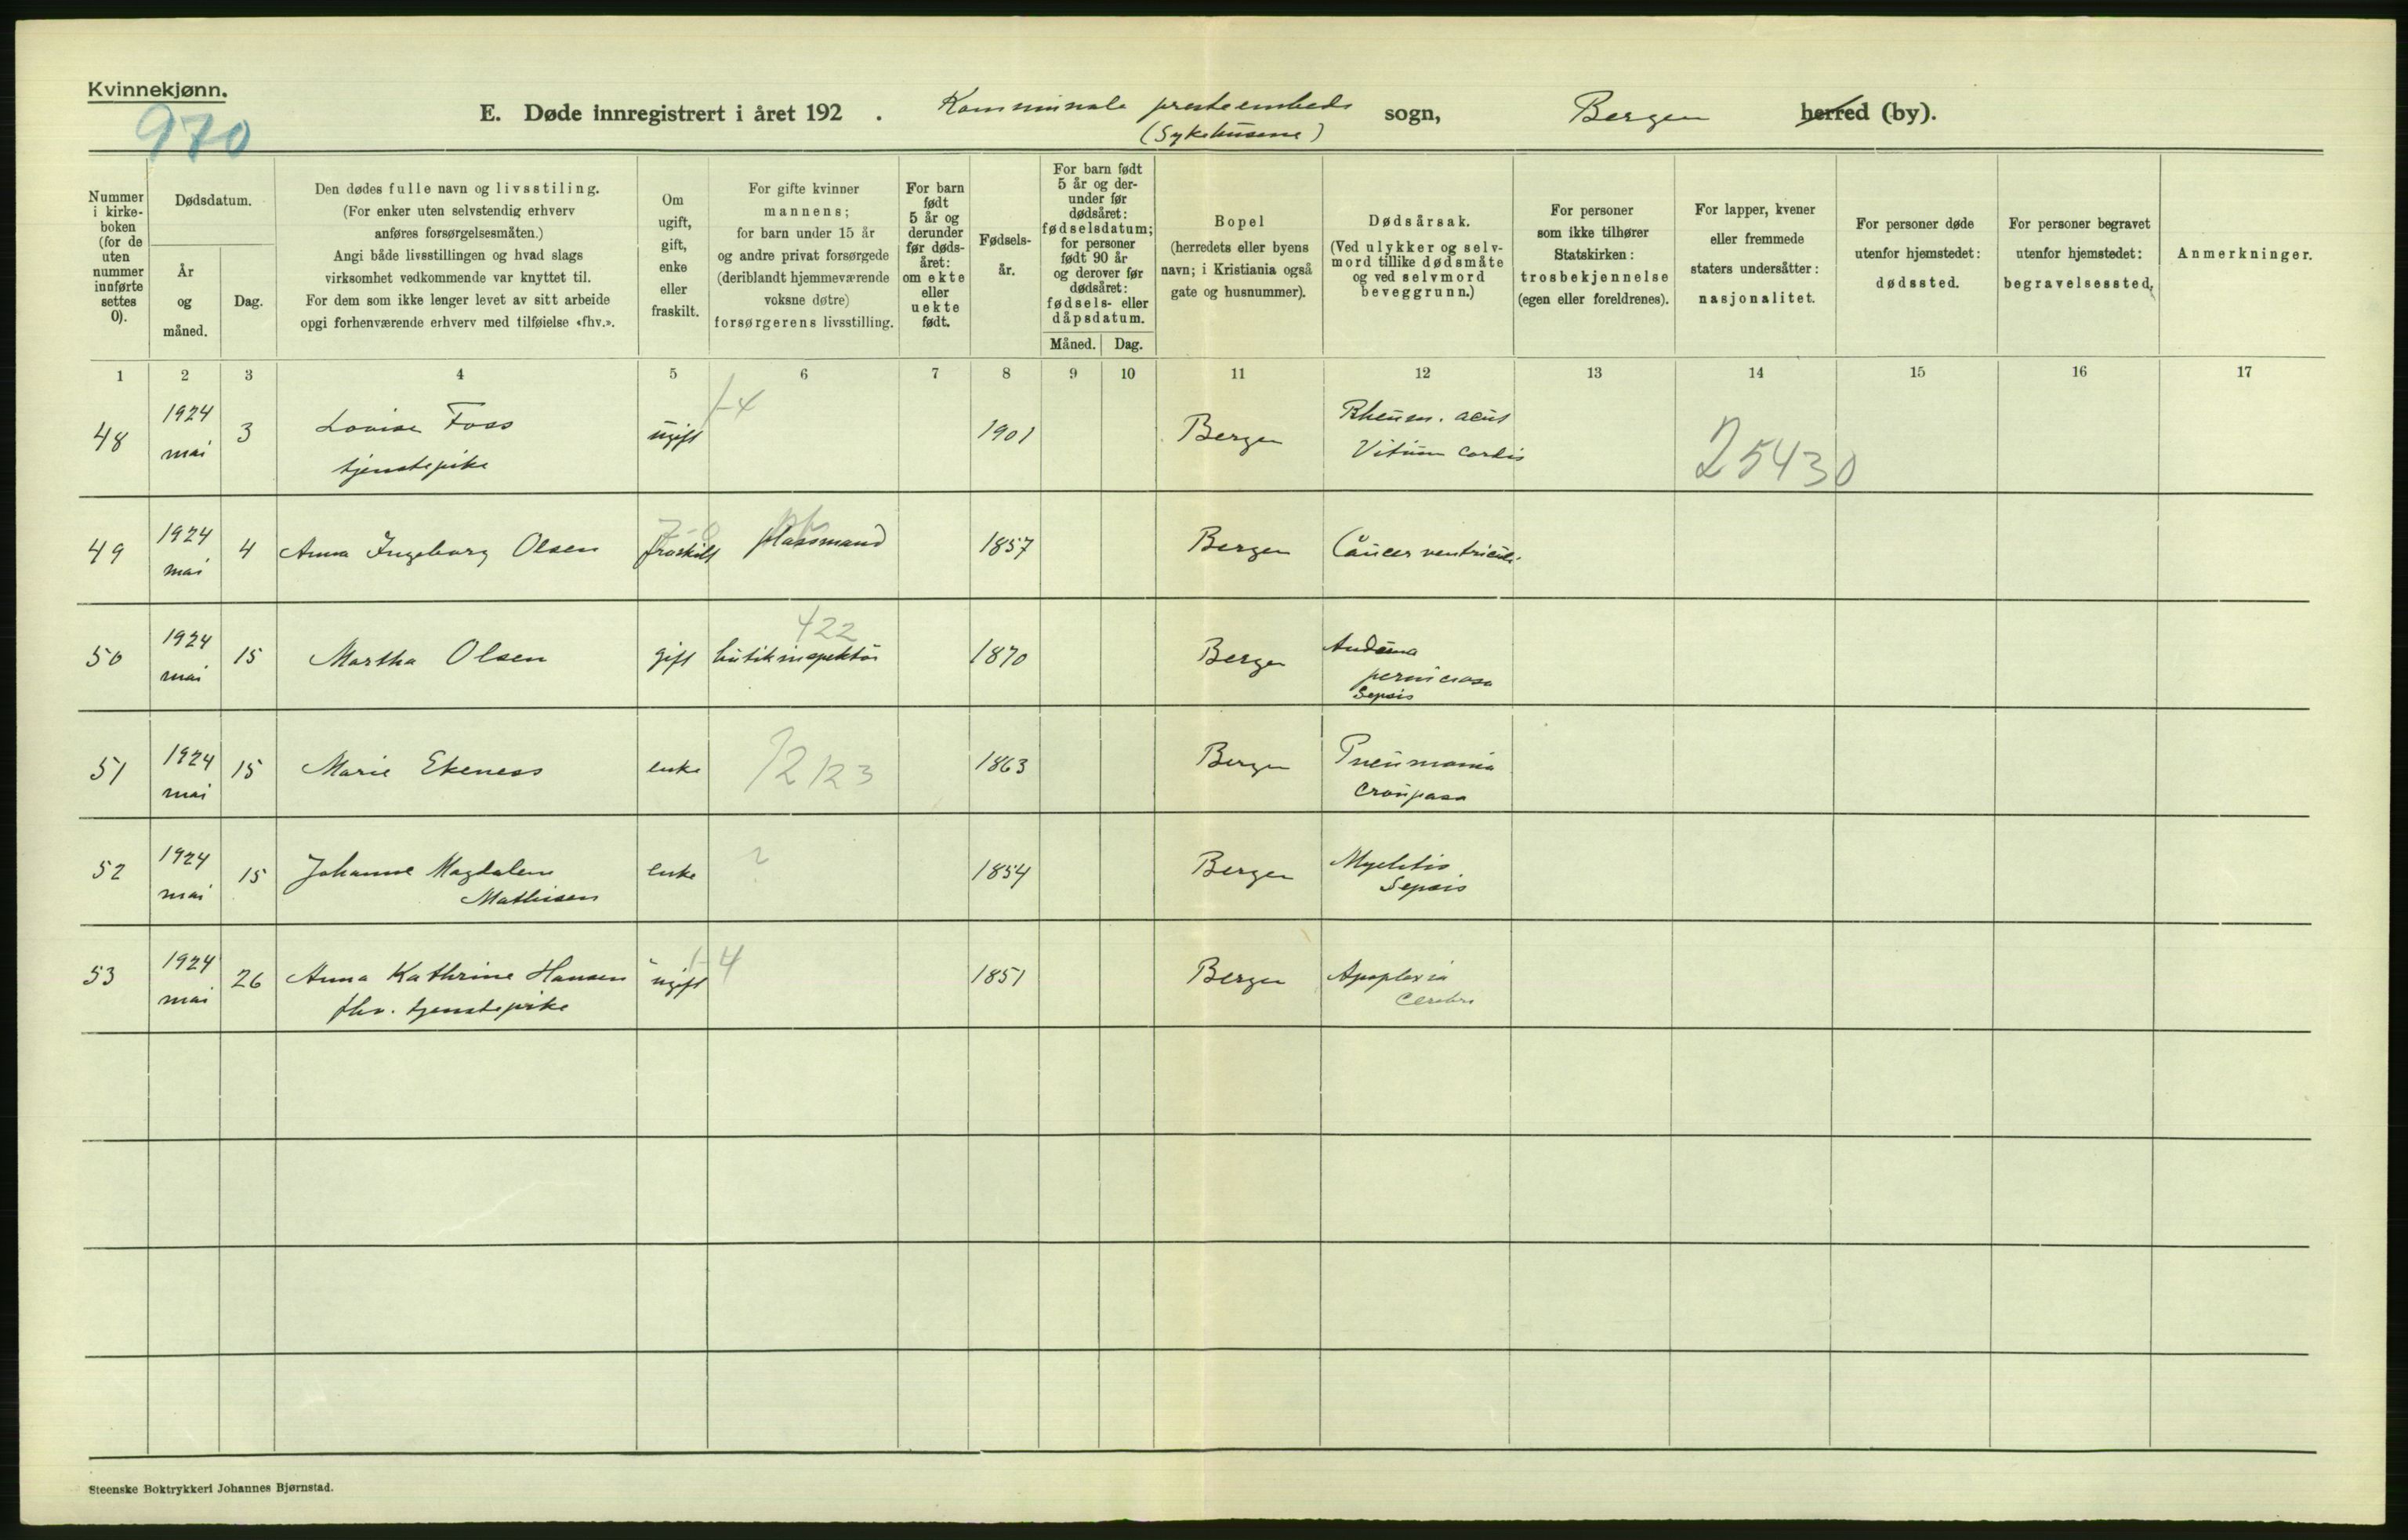 Kvinnekjønn.
970
E. Døde innregistrert i året 192 . Kommunale presteembede sogn, Bergen herred (by).
(Sykehusene)
Nummer i kirke-boken (for de uten nummer innførte settes 0).
Dødsdatum.
År og måned.
Dag.
Den dødes fulle navn og livsstiling.
(For enker uten selvstendig erhverv
anføres forsørgelsesmåten.)
Angi både livsstillingen og hvad slags
virksomhet vedkommende var knyttet til.
For dem som ikke lenger levet av sitt arbeide
opgi forhenværende erhverv med tilføielse «fhv.».
Om
ugift,
gift,
enke
eller
fraskilt.
For gifte kvinner
mannens;
for barn under 15 år
og andre privat forsørgede
(deriblandt hjemmeværende
voksne døtre)
forsørgerens livsstilling.
For barn
født
5 år og
derunder
før døds-
året:
om ekte
eller
uekte
født.
Fødsels-
år.
For barn født
5 år og der-
under før
dødsåret:
fødselsdatum;
for personer
født 90 år
og derover før
dødsåret:
fødsels- eller
dåpsdatum.
Måned. Dag.
Bopel
(herredets eller byens
navn; i Kristiania også
gate og husnummer).
Dødsårsak.
(Ved ulykker og selv-
mord tillike dødsmåte
og ved selvmord
beveggrunn.)
For personer
som ikke tilhører
Statskirken:
trosbekjennelse
(egen eller foreldrenes).
For lapper, kvener
eller fremmede
staters undersåtter:
nasjonalitet.
For personer døde
utenfor hjemstedet:
dødssted.
For personer begravet
utenfor hjemstedet:
begravelsessted.
Anmerkninger.
1 2 3 4 5 6 7 8 9 10 11 12 13 14 15 16 17
48 1924 mai 3 Lovise Foss tjenstepike ugift 1-4 1901 Bergen Rheum. acut Vitium cordis 25430
49 1924 mai 4 Anna Ingeborg Olsen fraskilt plassmand 1857 Bergen Cancer ventriculi
50 1924 mai 15 Martha Olsen gift butikinspektør 422 1870 Bergen perniciosa Sepsis
51 1924 mai 15 Marie Ekeness enke 1863 Bergen Pneumonia crouposa
52 1924 mai 15 Johanne Magdalene Mathisen enke ? 1854 Bergen Myelitis Sepsis
53 1924 mai 26 Anna Kathrine Hansen fhv. tjenstepike ugift 1-4 1851 Bergen Apoplexia cerebri
Steenske Boktrykkeri Johannes Bjørnstad.